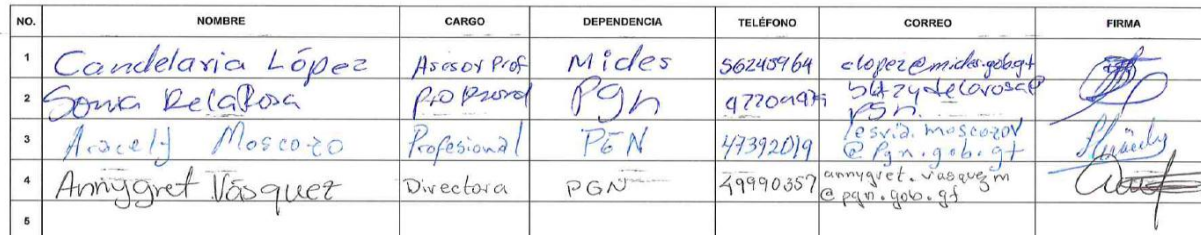 NO. NOMBRE CARGO DEPENDENCIA TELÉFONO CORREO FIRMA
1 Candelaria López Asesor Prof Mides 56245964 clopez@mides.gob.gt
2 Sonia DelaRosa Pgn
3 Aracely Moscozo Profesional PGN 47392019 lesvia.moscozov
@pgn.gob.gt
4 Annygret Vásquez Directora PGN 49990357 annygret.vasquezm
@pgn.gob.gt
5